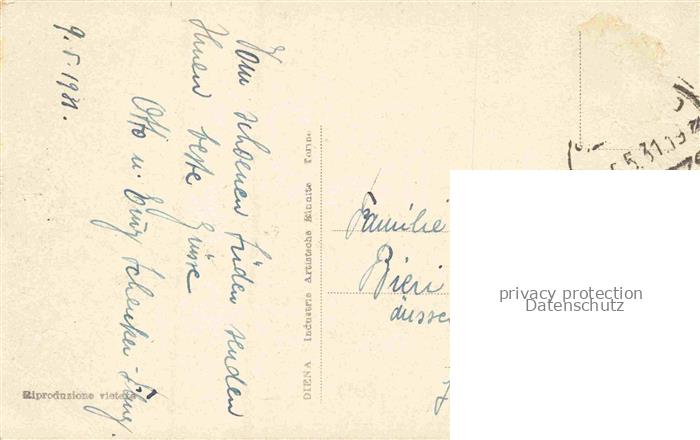 9. 5. 1931.
Vom schoenen Süden senden
Ihnen beste Grüsse
Otto u. Emy Schenker-
Riproduzione vietata
DIENA Industrie Artistiche Riunite Torino
5.31.19
Familie
Bieri
äusser
privacy protection
Datenschutz